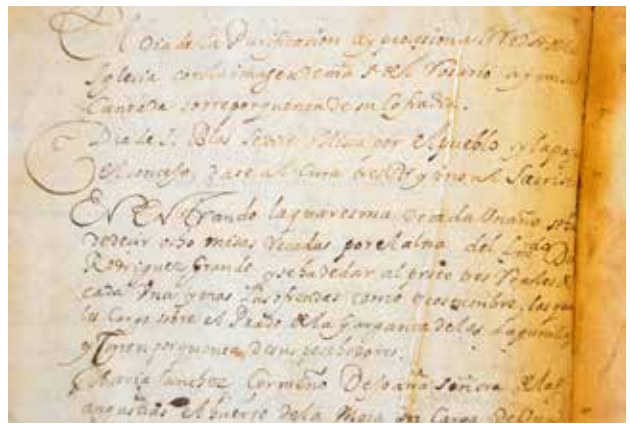 El Dia de la Purificacion ay procesion al Rededor de la
Iglesia con la imagen de nra Sra del Rosario ay misa
Cantada corre por quenta de su Cofradia.
Dia de S. Blas Se dize missa por el pueblo y la paga
el concejo, dase al Cura tres Rs y uno al Sacristan
EN ENtrando la quaresma de cada Un año, se han
de dezir ocho misas Rezadas por el alma del
Rodriguez Grande y se ha de dar al preste tres Reales de
cada Una, y mas las ofrendas como de costumbre, las qua
les Cargo sobre el Prado de la Garganta de las lagunillas
y Corren por quenta de sus poseedores.
Maria Sanchez Cermeño Dejo a nra Señora de las
angustias el huerto de la Mora con Carga de